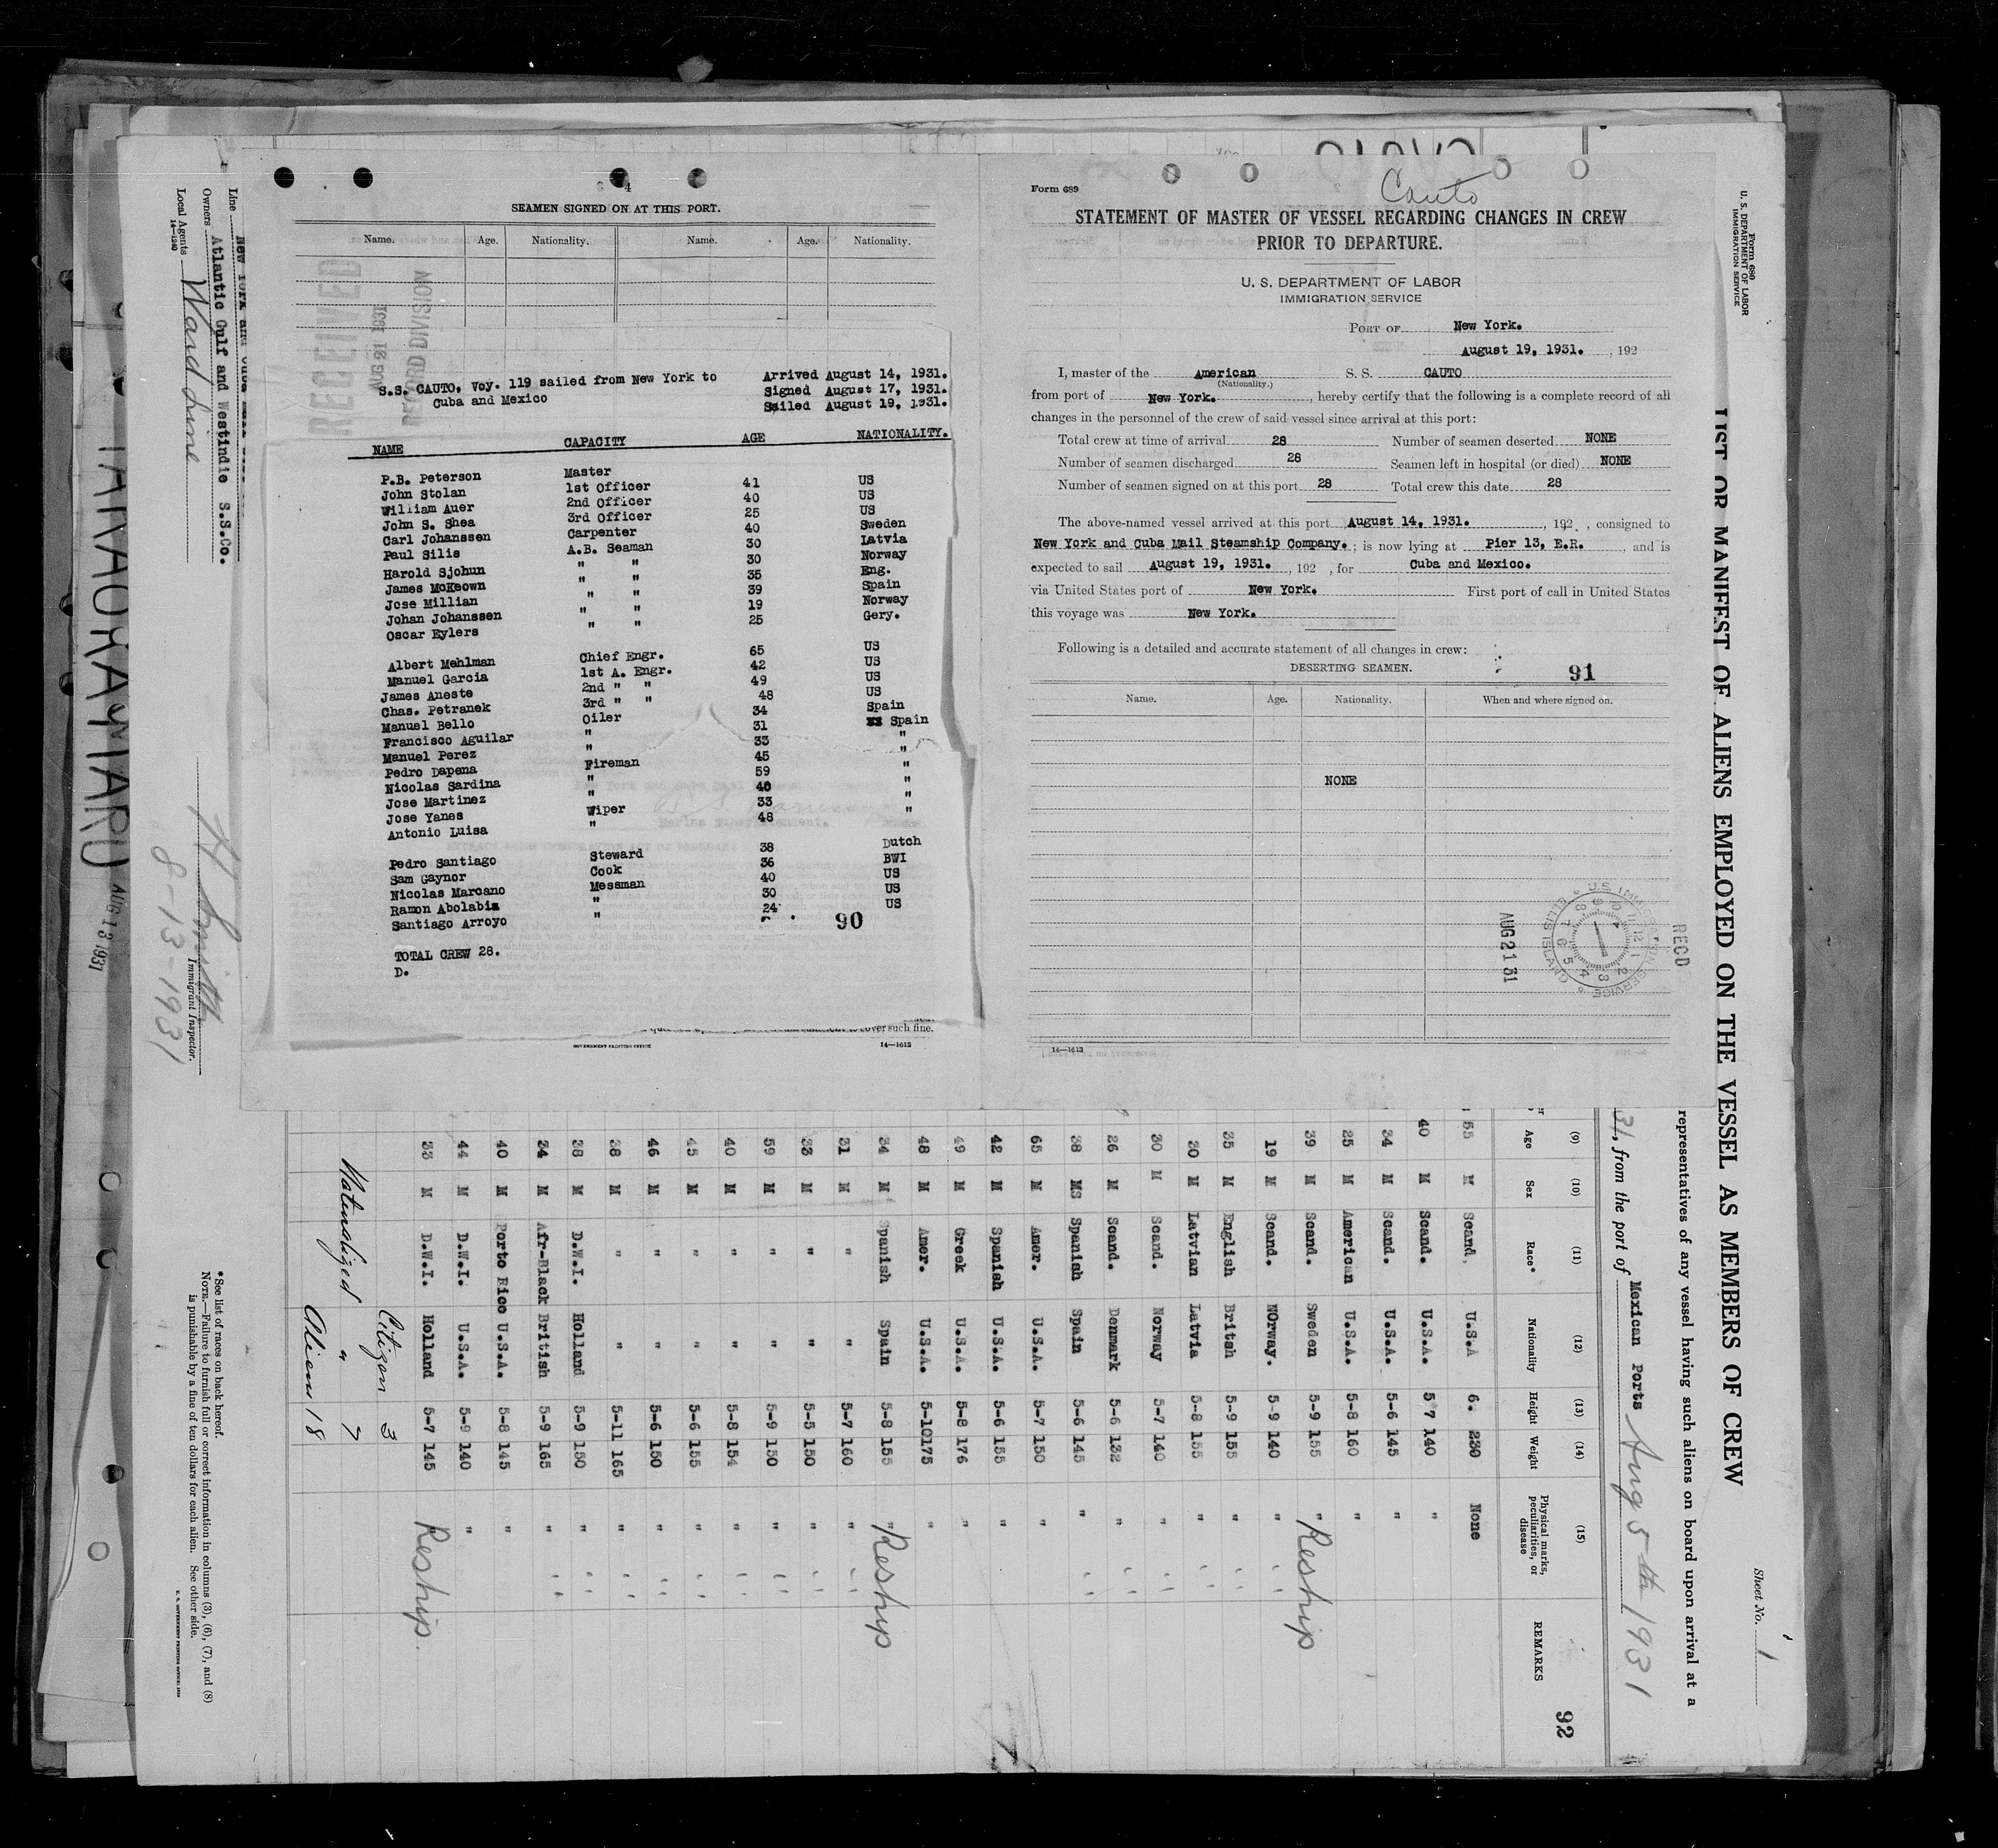 SEAMEN SIGNED ON AT THIS PORT.
Name. Age. Nationality. Name. Age. Nationality.
RECEIVED
AUG 21 1931
RECORD DIVISION
S.S. CAUTO. Voy. 119 sailed from New York to Arrived August 14, 1931.
Cuba and Mexico Signed August 17, 1931.
Sailed August 19, 1931.
NAME CAPACITY AGE NATIONALITY.
P.B. Peterson Master
John Stolan 1st Officer 41 US
William Auer 2nd Officer 40 US
John S. Shea 3rd Officer 25 US
Carl Johanssen Carpenter 40 Sweden
Paul Silis A.B. Seaman 30 Latvia
Harold Sjohun " " 30 Norway
James McKeown " " 35 Eng.
Jose Millian " " 39 Spain
Johan Johanssen " " 19 Norway
Oscar Eylers " " 25 Gery.
Albert Mehlman Chief Engr. 65 US
Manuel Garcia 1st A. Engr. 42 US
James Aneste 2nd " " 49 US
Chas. Petranek 3rd " " 48 US
Manuel Bello Oiler 34 Spain
Francisco Aguilar " 31 Spain
Manuel Perez " 33 "
Pedro Dapena Fireman 45 "
Nicolas Sardina " 59 "
Jose Martinez " 40 "
Jose Yanes Wiper 33 "
Antonio Luisa " 48 "
Pedro Santiago Steward 38 Dutch
Sam Gaynor Cook 36 BWI
Nicolas Marcano Messman 40 US
Ramon Abolabia " 30 US
Santiago Arroyo " 24 US
90
TOTAL CREW 28.
D.
cover such fine.
GOVERNMENT PRINTING OFFICE 14—1613
Form 689
Cauto
STATEMENT OF MASTER OF VESSEL REGARDING CHANGES IN CREW
PRIOR TO DEPARTURE.
U. S. DEPARTMENT OF LABOR
IMMIGRATION SERVICE
PORT OF New York.
August 19, 1931. , 192
I, master of the American S. S. CAUTO
(Nationality.)
from port of New York. , hereby certify that the following is a complete record of all
changes in the personnel of the crew of said vessel since arrival at this port:
Total crew at time of arrival 28 Number of seamen deserted NONE
Number of seamen discharged 28 Seamen left in hospital (or died) NONE
Number of seamen signed on at this port 28 Total crew this date 28
The above-named vessel arrived at this port August 14, 1931. , 192 , consigned to
New York and Cuba Mail Steamship Company. ; is now lying at Pier 13, E.R. , and is
expected to sail August 19, 1931. , 192 , for Cuba and Mexico.
via United States port of New York. First port of call in United States
this voyage was New York.
Following is a detailed and accurate statement of all changes in crew:
DESERTING SEAMEN. 91
Name. Age. Nationality. When and where signed on.
NONE
AUG 21 31
U.S. IMMIGRATION SERVICE
ELLIS ISLAND
RECD
14—1613
Form 680
U. S. DEPARTMENT OF LABOR
IMMIGRATION SERVICE
Sheet No. 1
LIST OR MANIFEST OF ALIENS EMPLOYED ON THE VESSEL AS MEMBERS OF CREW
representatives of any vessel having such aliens on board upon arrival at a
31, from the port of Mexican Ports Aug 5th 1931
92
(9) (10) (11) (12) (13) (14) (15)
Age Sex Race* Nationality Height Weight Physical marks, peculiarities, or disease REMARKS
55 M Scand. U.S.A 6. 230 None
40 M Scand. U.S.A. 5 7 140 "
34 M Scand. U.S.A. 5-6 145 "
25 M American U.S.A. 5-8 160 "
39 M Scand. Sweden 5-9 155 " Reship
19 M Scand. NOrway. 5-9 140 "
35 M English British 5-9 155 "
30 M Latvian Latvia 5-8 155 "
30 M Scand. Norway 5-7 140 "
26 M Scand. Denmark 5-6 132 "
38 MS Spanish Spain 5-6 145 "
65 M Amer. U.S.A. 5-7 150 "
42 M Spanish U.S.A. 5-6 155 "
49 M Greek U.S.A. 5-8 176 "
48 M Amer. U.S.A. 5-10175 "
34 M Spanish Spain 5-8 155 " Reship
31 M " " 5-7 160 "
33 M " " 5-5 150 "
59 M " " 5-9 150 "
40 M " " 5-8 154 "
45 M " " 5-6 155 "
46 M " " 5-6 150 "
38 M " " 5-11 165 "
38 M D.W.I. Holland 5-9 150 "
34 M Afr-Black British 5-9 165 "
40 M Porto Rico U.S.A. 5-8 145 "
44 M D.W.I. U.S.A. 5-9 140 "
33 M D.W.I. Holland 5-7 145 Reship.
Citizen 3
Naturalized " 7
Aliens 18
Line New York and Cuba Mail
Owners Atlantic Gulf and Westindie S.S.Co.
Local Agents Ward Line
14—1240
H Smith
Immigrant Inspector.
8-13-1931
*See list of races on back hereof.
NOTE.—Failure to furnish full or correct information in columns (3), (6), (7), and (8)
is punishable by a fine of ten dollars for each alien. See other side.
AUG 13 1931